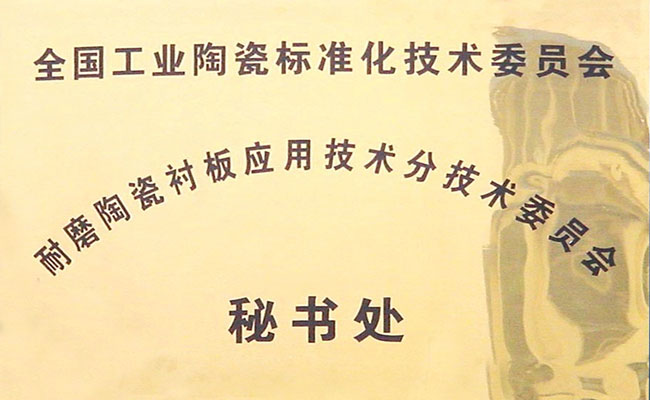 全国工业陶瓷标准化技术委员会
耐磨陶瓷衬板应用技术分技术委员会
秘书处